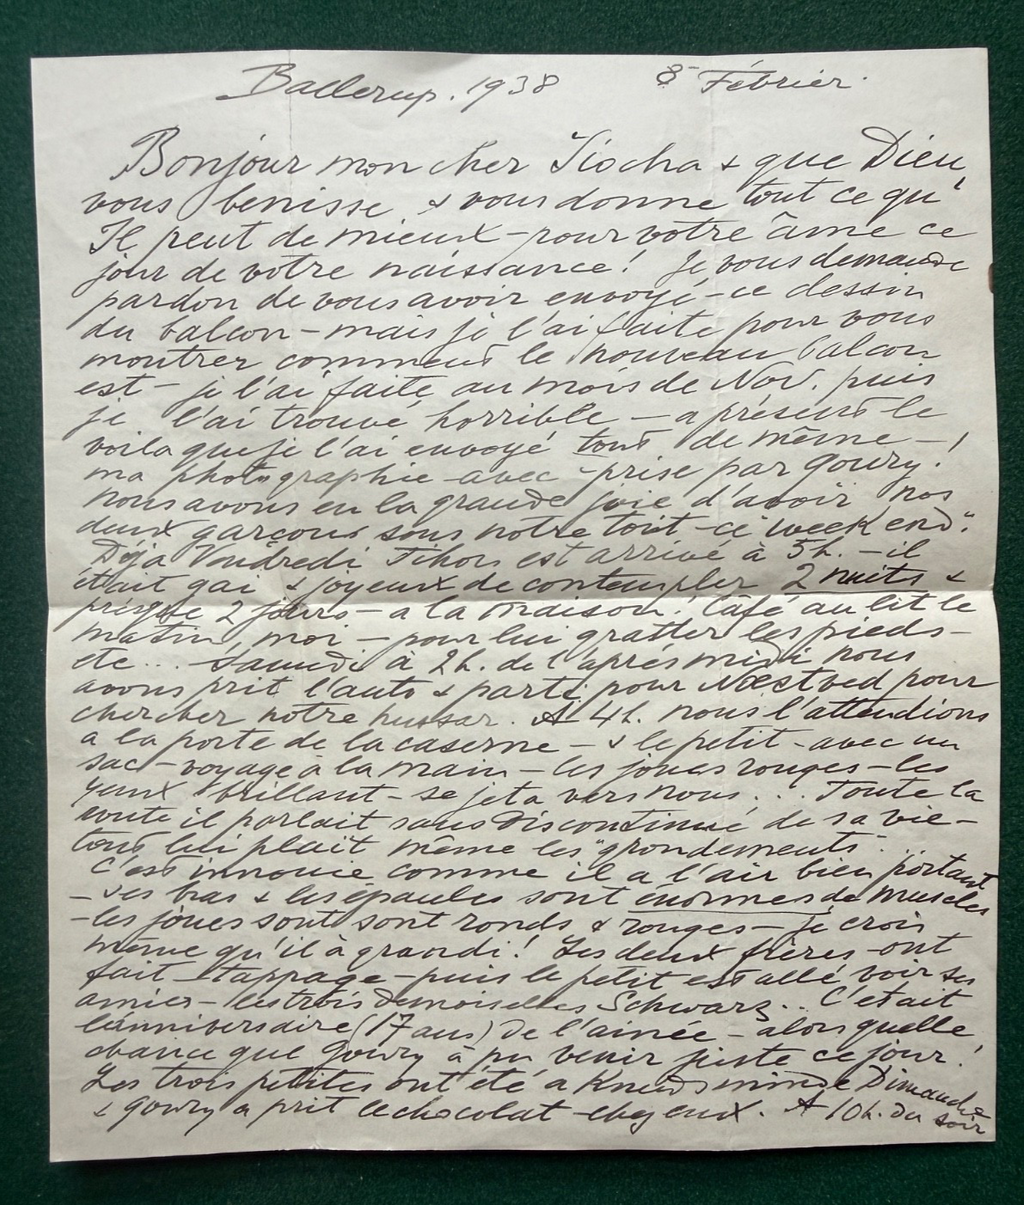 Ballerup. 1938 8 Février.
Bonjour mon cher Siocha & que Dieu
vous benisse, & vous donne tout ce qu'
Il peut de mieux – pour votre âme ce
jour de votre naissance! Je vous demande
pardon de vous avoir envoyé – ce dessin
du balcon – mais je l'ai faite pour vous
montrer comment le nouveau balcon
est – je l'ai faite au mois de Nov. puis
je l'ai trouvé horrible – a présent le
voila que je l'ai envoyé tout de même – !
ma photographie avec – prise par Goury!
nous avons eu la grande joie d'avoir nos
deux garçons sous notre toit – ce week end".
Déja Vendredi Tihon est arrivé à 5h. – il
était gai & joyeux de contempler 2 nuits &
presque 2 jours – a la maison! Café au lit le
matin, moi – pour lui gratter les pieds –
etc... Samedi à 2h. de l'aprés midi nous
avons prit l'auto & parti pour Næstved pour
chercher notre hussar. A 4h. nous l'attendions
a la porte de la caserne – & le petit – avec un
sac – voyage à la main – les joues rouges – les
yeux brillant – se jeta vers nous... Toute la
route il parlait sans discontinué de sa vie –
tout lui plait même les "grondements".
C'est innouie comme il a l'air bien portant
– ses bras & les épaules sont énormes de muscles
– les joues sont sont ronds & rouges – je crois
meme qu'il à grandi! Les deux frères – ont
fait – tappage – puis le petit est allé voir ses
amies – les trois demoiselles Schwarz.. C'etait
l'anniversaire (17 ans) de l'ainée – alors quelle
chance que Goury à pu venir juste ce jour!
Les trois petites ont été a Knudsminde Dimanche
& Goury a prit le chocolat chez eux. A 10h. du soir